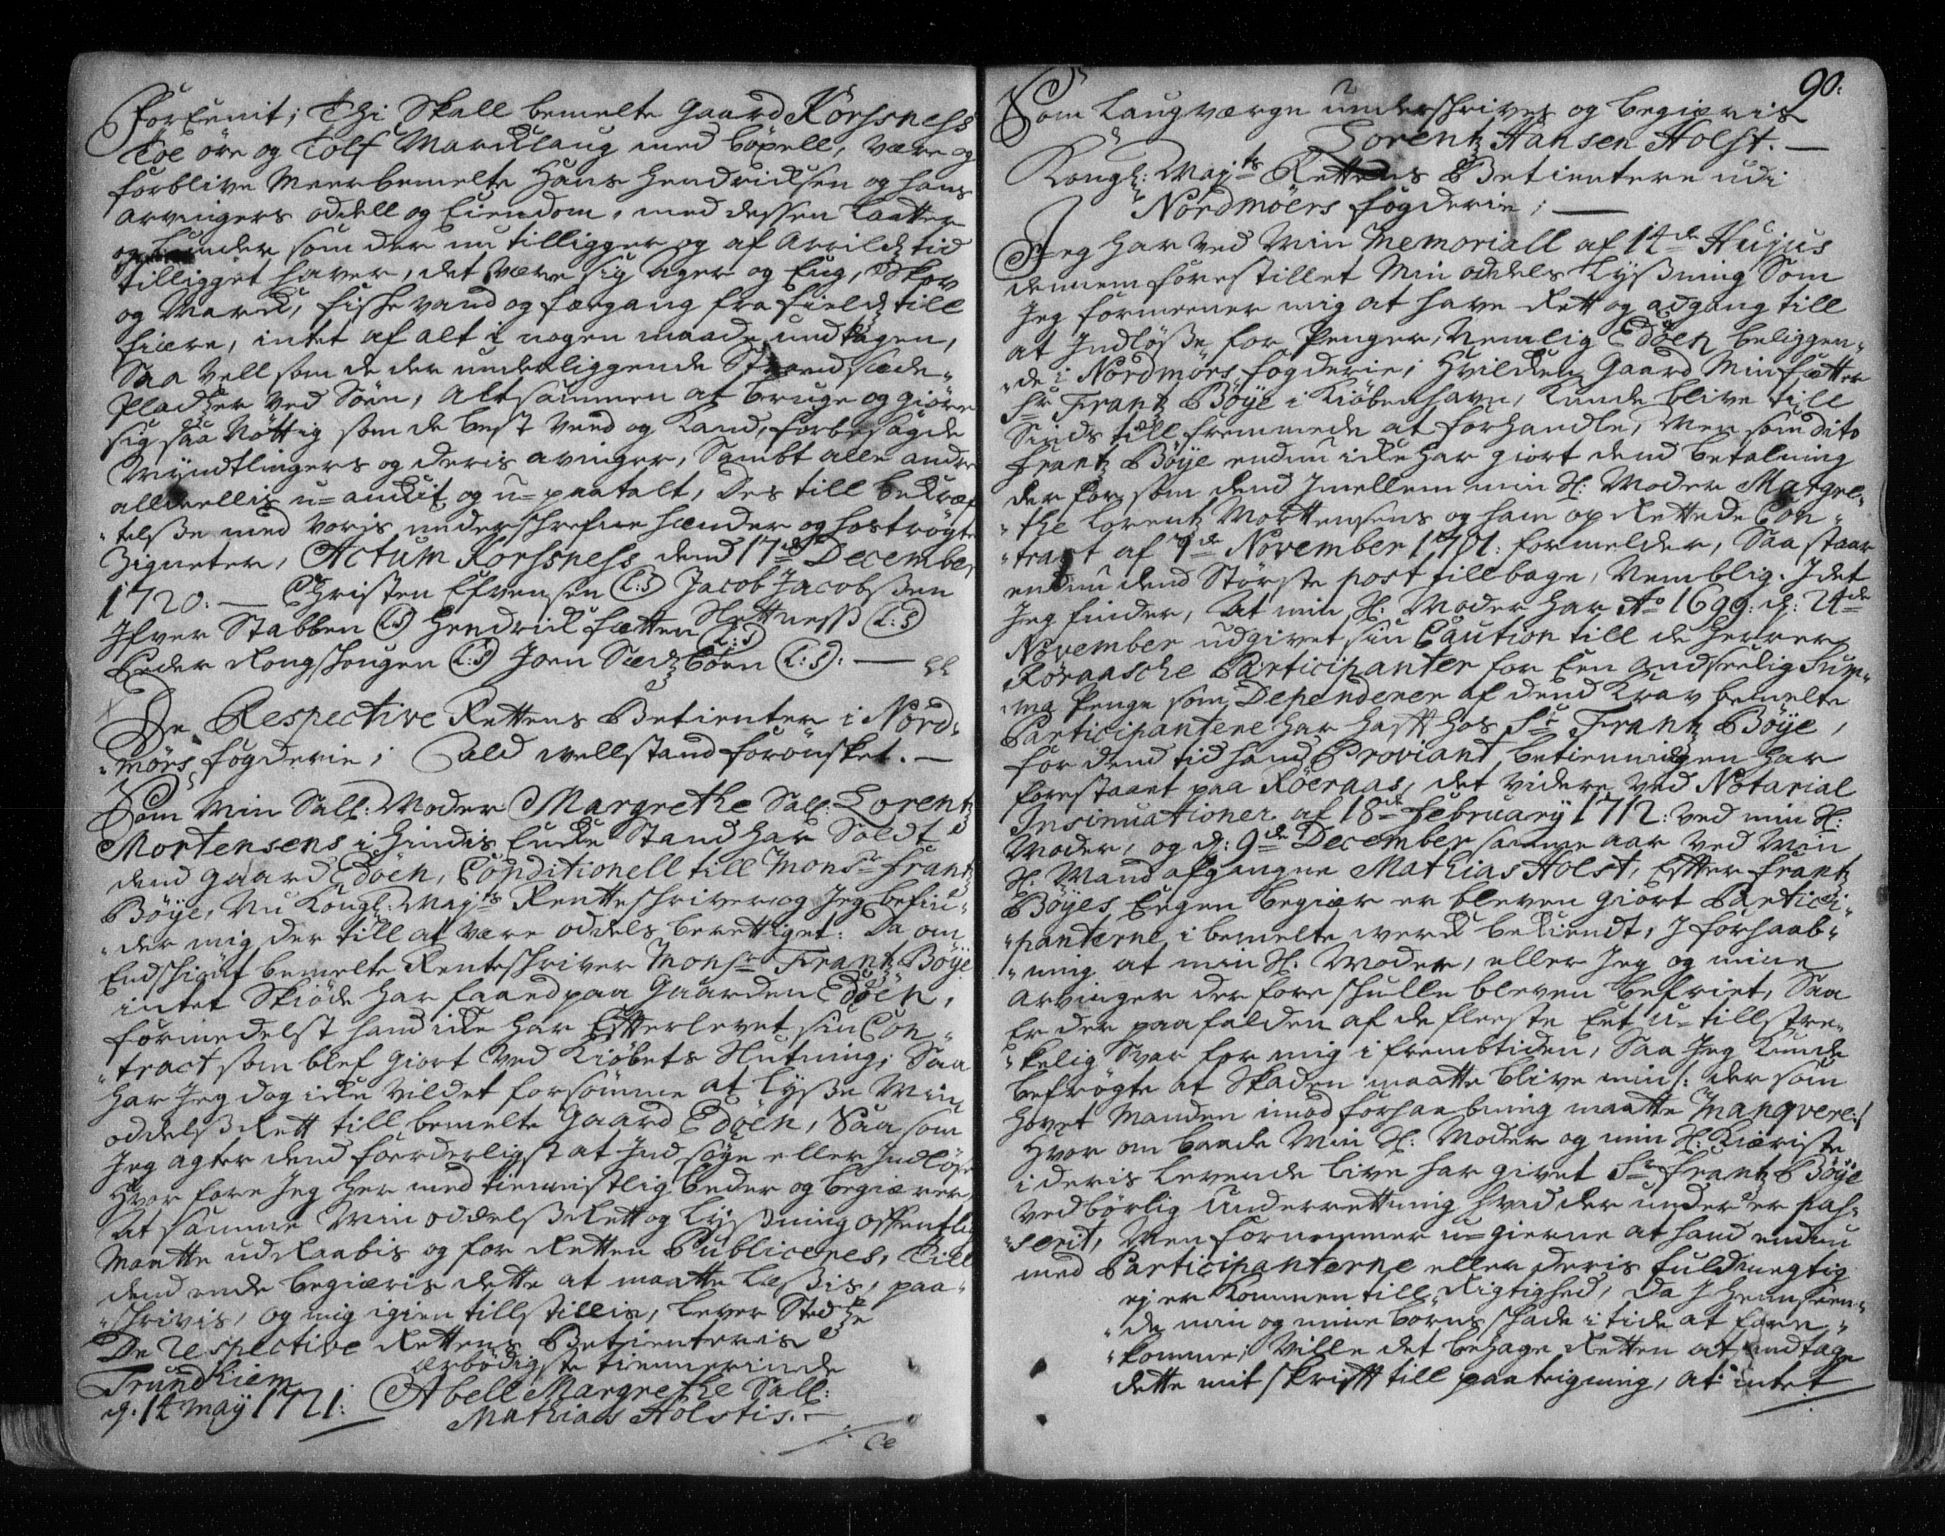 fortient; Thi Skall bemelte Gaard Korssness
Toe öre og Tolf Marcklaug med böxell, være og
forblive Meerbemelte Hans Hendricksen og hans
arvingers oddell og Eiendom, med dessen Laatter
og Lunder som der nu tilligger og af Arrilds tid
tilligget haver, det være sig Ager og Eng, Skov
og Marck, fiske vand og færgang fra field till
fiære, intet af alt i nogen maade undtagen,
Saa vell som de der underliggende Strand sæde-
Pladtzer ved Söen, Altsammen at bruge og giöre
sig saa Nöttig som de best veed og kand, forbesagde
Myndtlingers og deris avinger, Sambt alle andre
alldeellis u-anckit og u-paatalt, Des till bekræf-
telsse med voris underschrefne hænder og hoströgte
Zigneter, Actum Korssness dend 17de December
1720. Christen Efvensen (L:S) Jacob Jacobssen
Ifver Stabben (LS) Hendrick Sætter Slettness (L:S)
Peder Kongshougen (L:S) Joen Sædtzböen (L:S): —
De Respective Rettens Betienter i Nord-
mörs fogderie; Ald vellstand forönsket. —
Som Min Sall: Moder Margrethe Sall: Lorentz
Mortensens i hindis Encke Stand har Soldt
dend gaard Edöen, Conditionell till Monsr Frantz
Böye, Nu Kongl: Majts Renteschriver og Jeg befin-
der mig der till at være oddels berettiget: Da om
Endschiönt bemelte Renteschriver Monsr Frantz Böye
intet Skiöde har faaed paa Gaarden Edöen,
formedelst hand icke har Efterlevet sin Con-
tract som blef giort ved Kiöbets Slutning; Saa
har Jeg dog icke vildet forsömme at lysse Min
oddelss Rett till bemelte Gaard Edöen, Saasom
Jeg agter dend foerderligst at Ind söge eller Indlöse
Hvor fore Jeg her med tiennistlig beder og begiærer
At samme Min oddelss Rett og Lyssning offentlig
Maatte udRaabis og for Retten Publiceres, Till
dend ende begiæris dette at maatte læssis, paa-
schrivis, og mig igien tillstillis, lever Stedtze
De respective Rettens Betienteris
Trundhiem ærbödigste tiennerinde
d. 14 May 1721: Abell Margrethe Sall:
Mathias Holstis. —
90.
Som laugværge underschrives og begiæris
Lorentz Hansen Holst. —
Kongl: Majts Rettens Betientere udi
Nordmöers fogderie; —
Jeg har ved Min Memoriall af 14de Hujus
dennem forestillet Min oddels Lyssning Som
Jeg formeener mig at have Rett og adgang till
at Indlösse for Penger, Nemlig Edöen beliggen-
de i Nordmörs fogderie; Hvilcken Gaard Min fætter
Sr Frantz Böye i Kiöbenhavn, kunde blive till
Sinds till fremmede at forhandle, Men som dito
Frantz Böye endnu icke har giort dend betalning
derfor, som dend Imellem min Sl: Moder Margre-
the Lorentz Mortensens og ham op Rettede Con-
tract af 7de November 1701: formelder, Saa staar
endnu dend Störste post tillbage, Nemblig: Idet
Jeg finder, At min Sl: Moder har Ao 1699: d: 24de
November udgivet sin Caution till de Herrer
Röraasche Participanter for Een Andseelig Sum-
ma Penge som Dependerer af dend Krav bemelte
Participantere har hafft hos Sr Frantz Böye,
for dend tid hand Proviant betienningen har
forestaaet paa Röeraas, det videre ved Notarial
Insinuationer af 18de February 1712: ved min Sl:
Moder, og d: 9de December samme aar ved Min
Sl: Mand afgangne Mathias Holst, Efter Frantz
Böyes Eegen begiær er bleven giort Partici-
panterne i bemelte werck bekiendt, I forhaab-
ning at min Sl: Moder, eller Jeg og mine
Arvinger der fore skulle bleven befriet, Saa
Er der paafalden af de fleeste Eet u-tillstræ-
kelig Svar for mig i frembtiden, Saa Jeg kunde
befrögte at Skaden maatte blive min /: der som
Hovet Manden imod forhaabning maatte Manqvere:/
Hvor om baade Min Sl: Moder og min Sl: Kiæriste
i deris levende live har givet Sr Frantz Böye
ved börlig Underrettning hvad der under er pas-
serit, Men fornemmer u-gierne at hand endnu
med Participanterne eller deris fuldmegtig
ej er kommen till Rigtighed, Da I henseen-
de min og mine börns schade i tide at fore-
komme; Ville det behage Retten at andtage
dette mit skrifft till paategning, At intet